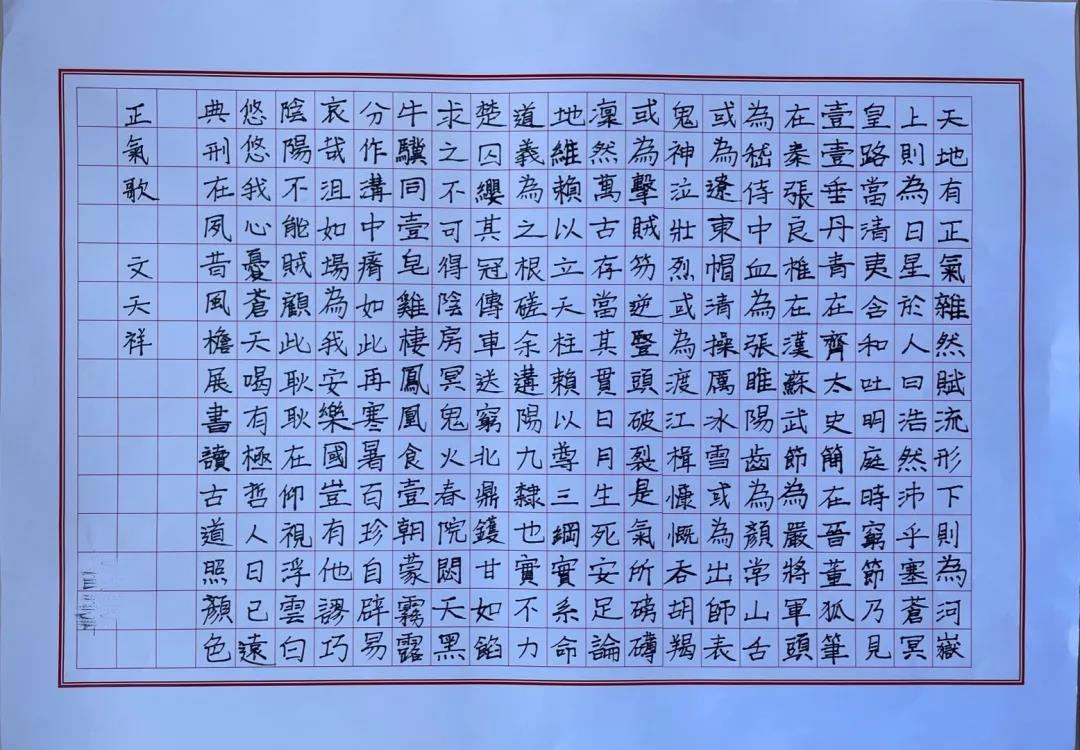 天地有正氣雜然賦流形下則為河嶽
上則為日星於人曰浩然沛乎塞蒼冥
皇路當清夷含和吐明庭時窮節乃見
壹壹垂丹青在齊太史簡在晉董狐筆
在秦張良椎在漢蘇武節為嚴將軍頭
為嵇侍中血為張睢陽齒為顏常山舌
或為遼東帽清操厲冰雪或為出師表
鬼神泣壯烈或為渡江楫慷慨吞胡羯
或為擊賊笏逆豎頭破裂是氣所磅礴
凜然萬古存當其貫日月生死安足論
地維賴以立天柱賴以尊三綱實系命
道義為之根磋余遘陽九隸也實不力
楚囚纓其冠傳車送窮北鼎鑊甘如餡
求之不可得陰房冥鬼火春院閟天黑
牛驥同壹皂雞棲鳳凰食壹朝蒙霧露
分作溝中瘠如此再寒暑百珍自辟易
哀哉沮如場為我安樂國豈有他謬巧
陰陽不能賊顧此耿耿在仰視浮雲白
悠悠我心憂蒼天喝有極哲人日已遠
典刑在夙昔風檐展書讀古道照顏色
正氣歌 文天祥